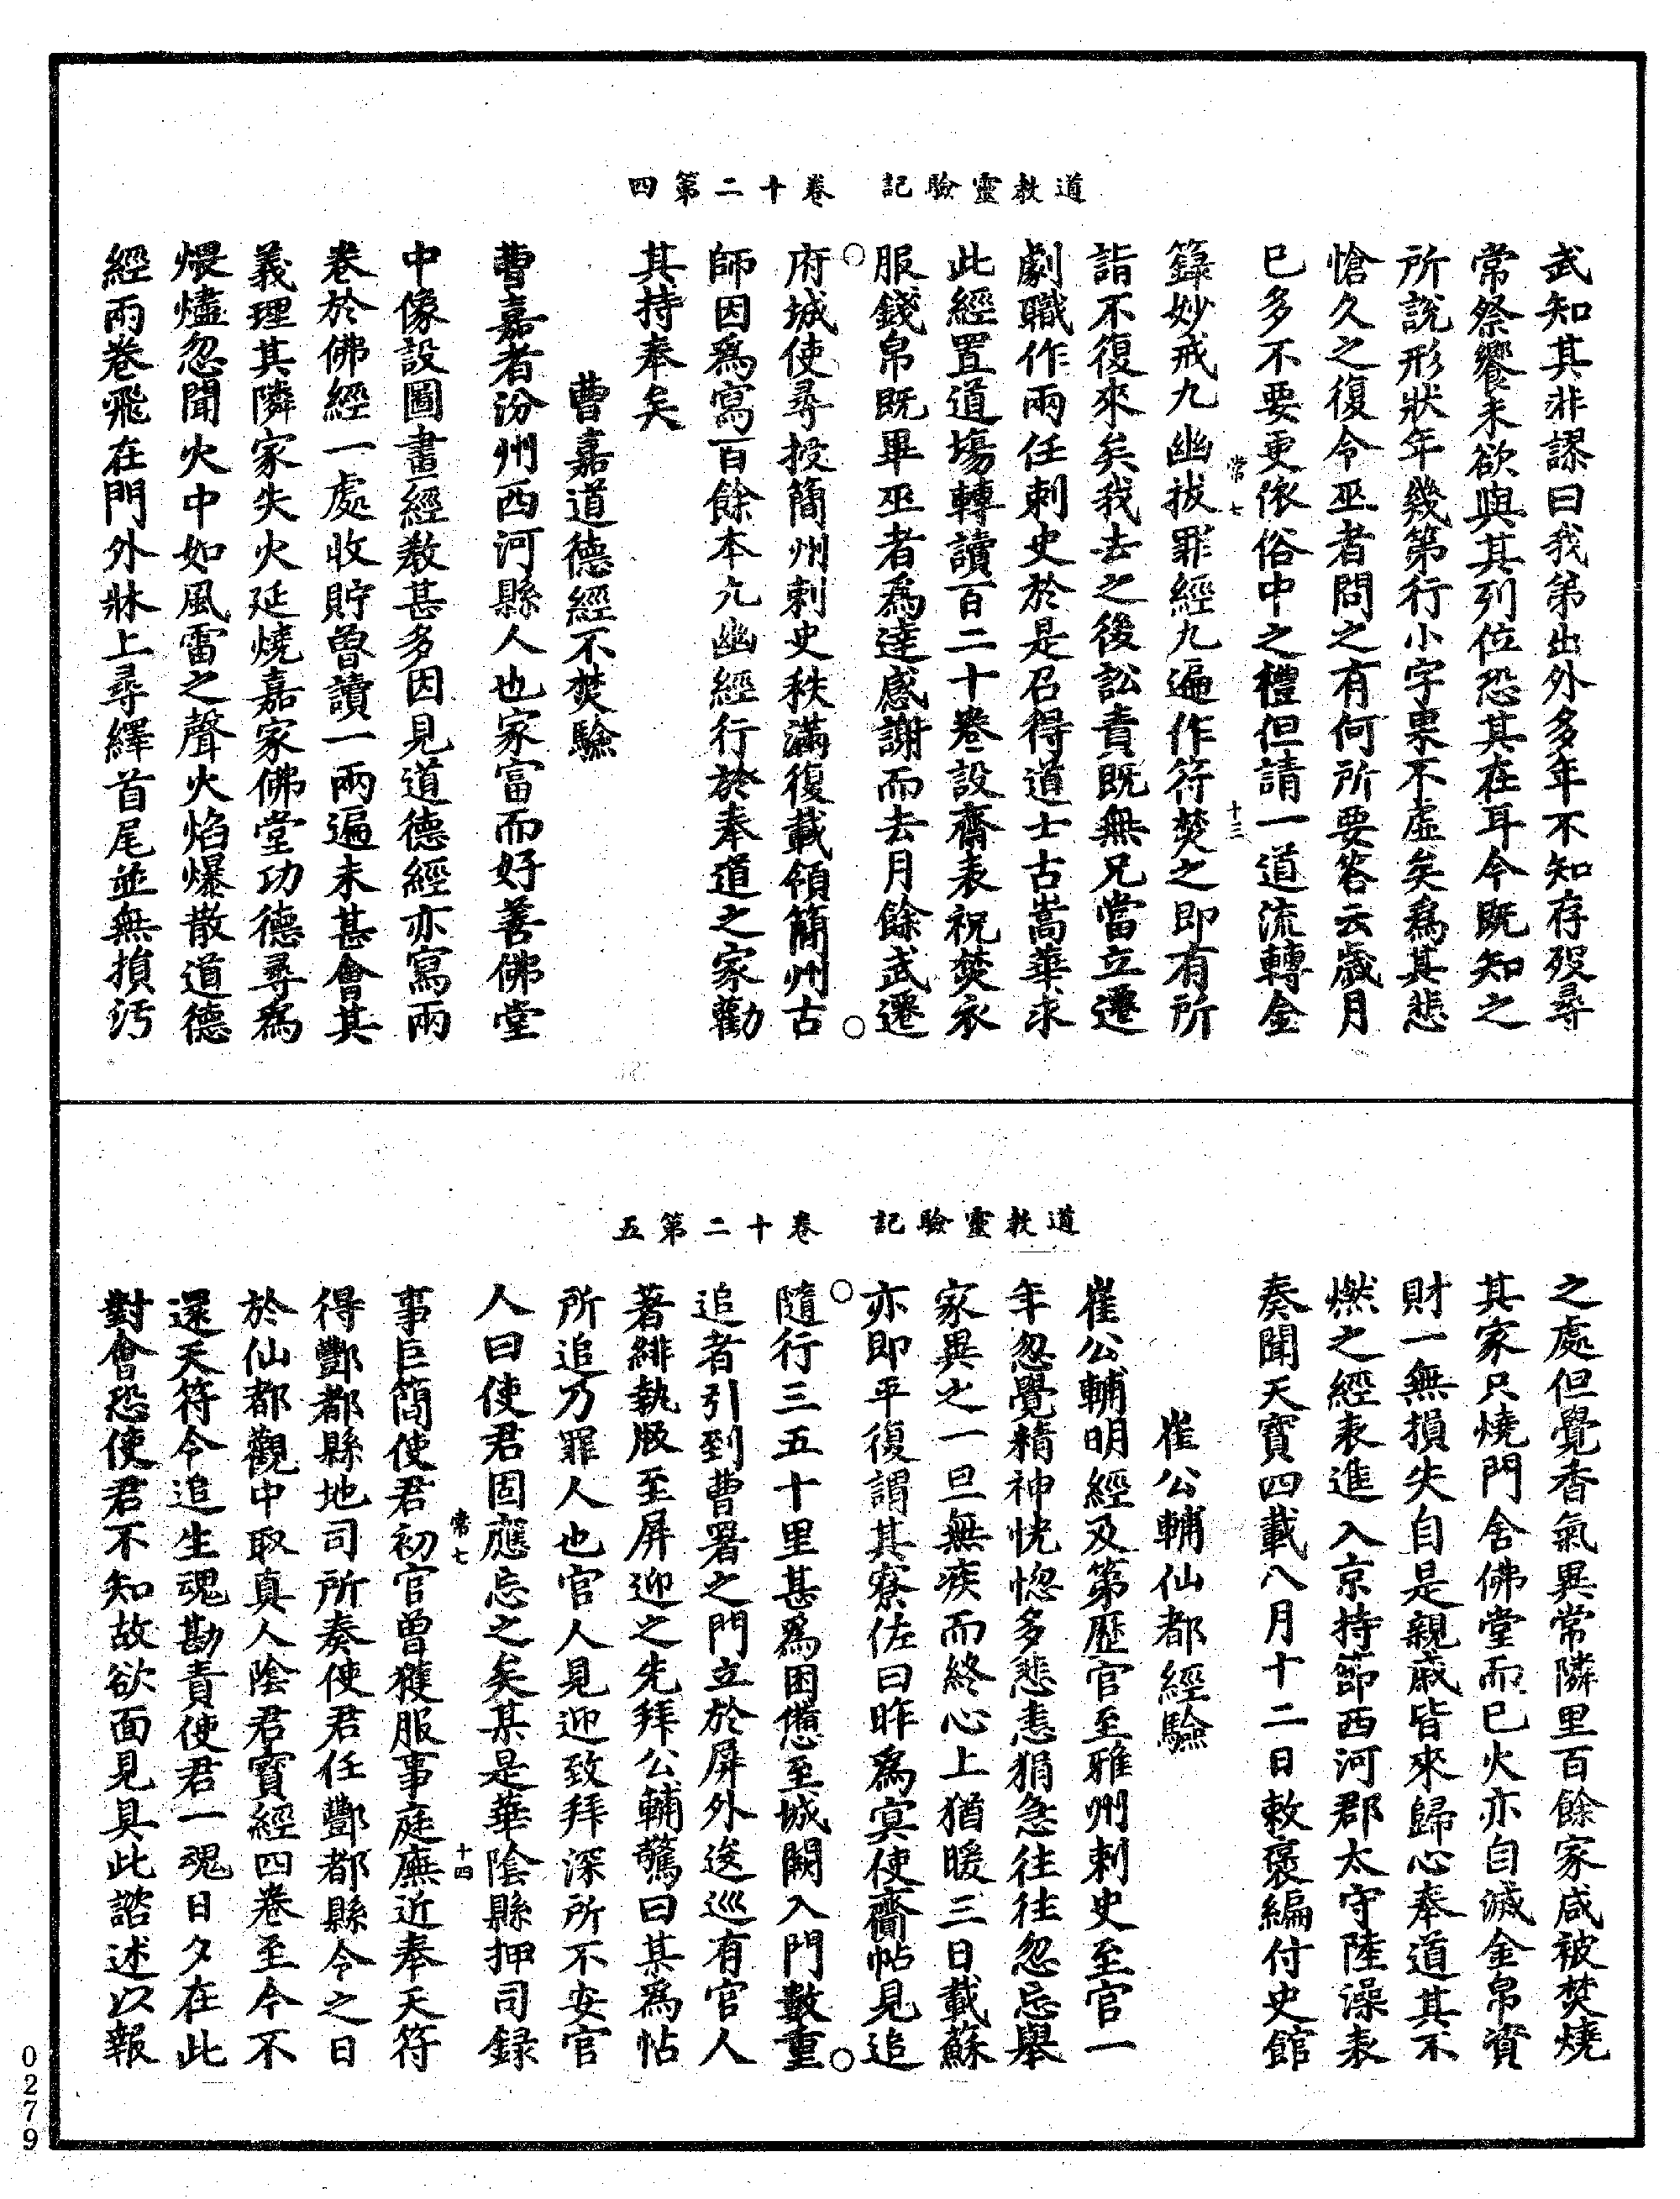 道教靈驗記　卷十二第四
武知其非謬曰我第出外多年不知存歿尋
常祭饗未欲與其列位恐其在耳今既知之
所說形狀年幾第行小字票不虛矣為其悲
愴久之復令巫者問之有何所要答云歲月
巳多不要更依俗中之禮但請一道流轉金
常七　十三
籙妙戒九幽拔罪經九遍作符焚之即有所
詣不復來矣我去之後訟責既無兄當立遷
劇職作兩任刺史於是召得道士古嵩華求
此經置道場轉讀百二十卷設齋表祝焚衣
服錢帛既畢巫者為達感謝而去月餘武遷
府城使尋授簡州刺史秩滿復載領簡州古
師因為寫百餘本九幽經行於奉道之家勸
其持奉矣
曹嘉道德經不焚驗
曹嘉者汾州西河縣人也家富而好善佛堂
中像設圖畫經教甚多因見道德經亦寫兩
卷於佛經一處收貯曾讀一兩遍未甚會其
義理其隣家失火延燒嘉家佛堂功德尋為
煨燼忽聞火中如風雷之聲火焰爆散道德
經兩卷飛在門外牀上尋繹首尾並無損汚
道教靈驗記　卷十二第五
之處但覺香氣異常隣里百餘家咸被焚燒
其家只燒門舍佛堂而巳火亦自滅金帛資
財一無損失自是親戚皆來歸心奉道其不
燃之經表進入京持節西河郡太守陸澡表
奏聞天寶四載八月十二日敕褒編付史館
崔公輔仙都經驗
崔公輔明經及第歷官至雅州刺史至官一
年忽覺精神恍惚多悲恚狷急往往忽忘舉
家異之一旦無疾而終心上猶暖三日載蘇
亦即平復謂其寮佐曰昨為冥使齎帖見追
隨行三五十里甚為困憊至城闕入門數重
追者引到曹署之門立於屏外逡巡有官人
著緋執版至屏迎之先拜公輔驚曰某為帖
所追乃罪人也官人見迎致拜深所不安官
人曰使君固應忘之矣某是華陰縣押司錄
常七　十四
事巨簡使君初官曾獲服事庭廡近奉天符
得酆都縣地司所奏使君任酆都縣令之日
於仙都觀中取真人陰君寶經四卷至今不
還天符令追生魂勘責使君一魂日夕在此
對會恐使君不知故欲面見具此諮述以報
0279